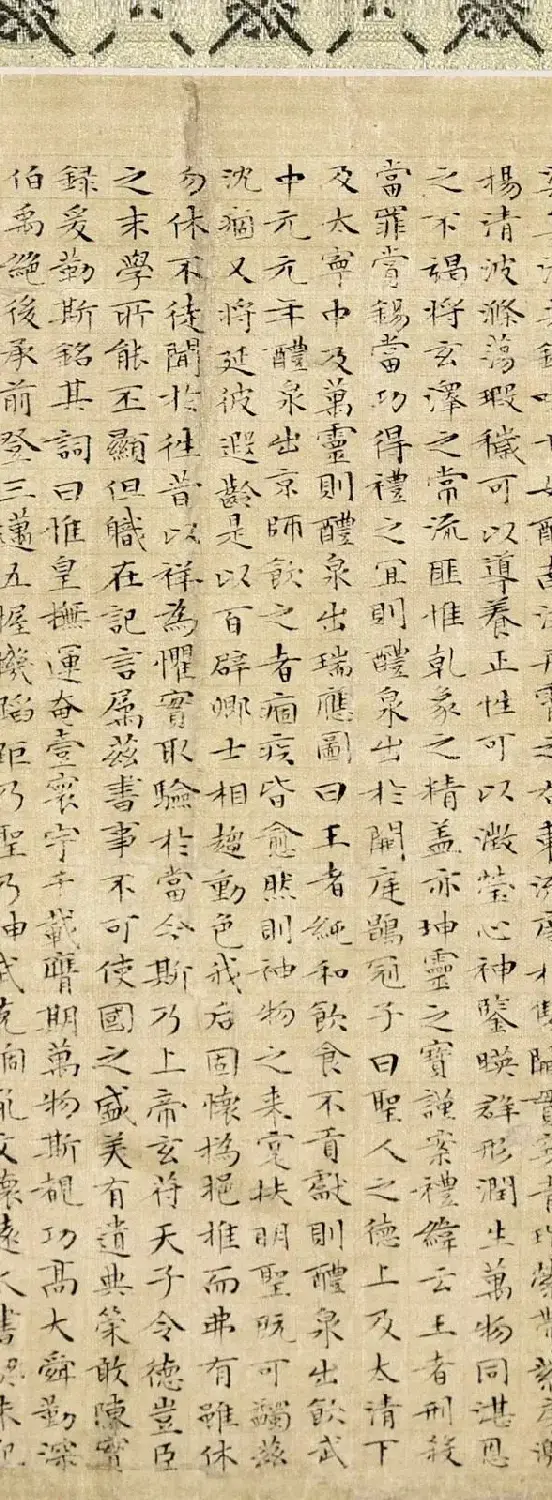 清若鏡味甘如醴南注丹霄之右東流度於雙闕貫穿青瑣縈帶紫房激
楊清波滌蕩瑕穢可以導養正性可以澂瑩心神鑒暎群形潤生萬物同湛恩
之不竭將玄澤之常流匪惟乾象之精盖亦坤靈之寶謹案禮緯云王者刑殺
當罪賞錫當功得禮之宜則醴泉出於闕庭鶡冠子曰聖人之德上及太清下
及太寧中及萬靈則醴泉出瑞應圖曰王者純和飲食不貢獻則醴泉出飲武
中元元年醴泉出京師飲之者痼疾皆愈然則神物之来寔扶明聖既可蠲兹
沈痼又將延彼遐齡是以百辟卿士相趨動色我后固懷撝挹推而弗有雖休
勿休不徒聞於往昔以祥為懼實取驗於當今斯乃上帝玄符天子令德豈臣
之末學所能丕顯但職在記言屬兹書事不可使國之盛美有遺典策敢陳實
録爰勒斯銘其詞曰惟皇撫運奄壹寰宇千載膺期萬物斯覩功高大舜勤深
伯禹絶後承前登三邁五握機蹈矩乃聖乃神武克禍亂文懷遠人書契未紀